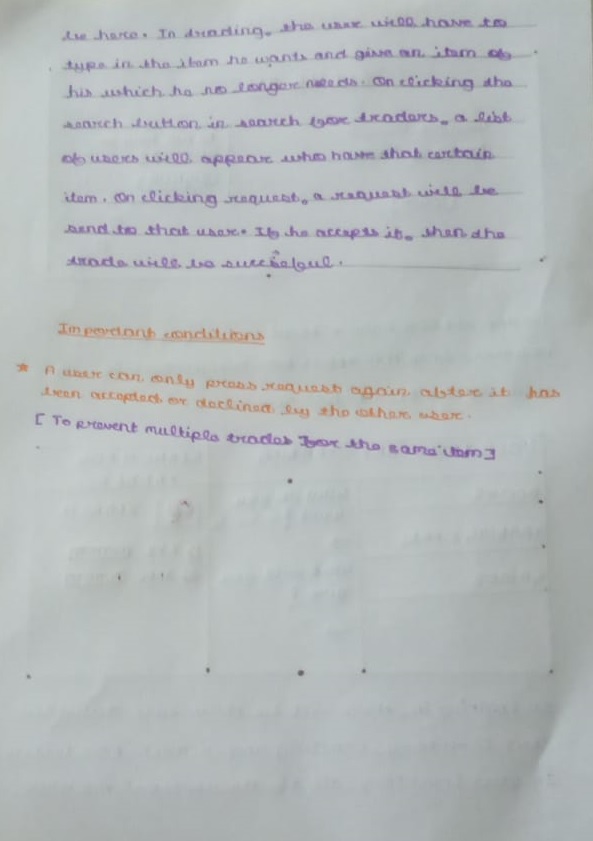 be here. In trading, the user will have to
type in the item he wants and give an item of
his which he no longer needs. On clicking the
search button in search for traders, a list
of users will appear who have that certain
item. On clicking request, a request will be
send to that user. If he accepts it, then the
trade will be successful.
Important conditions
* A user can only press request again after it has
been accepted or declined by the other user.
[ To prevent multiple trades for the same item ]